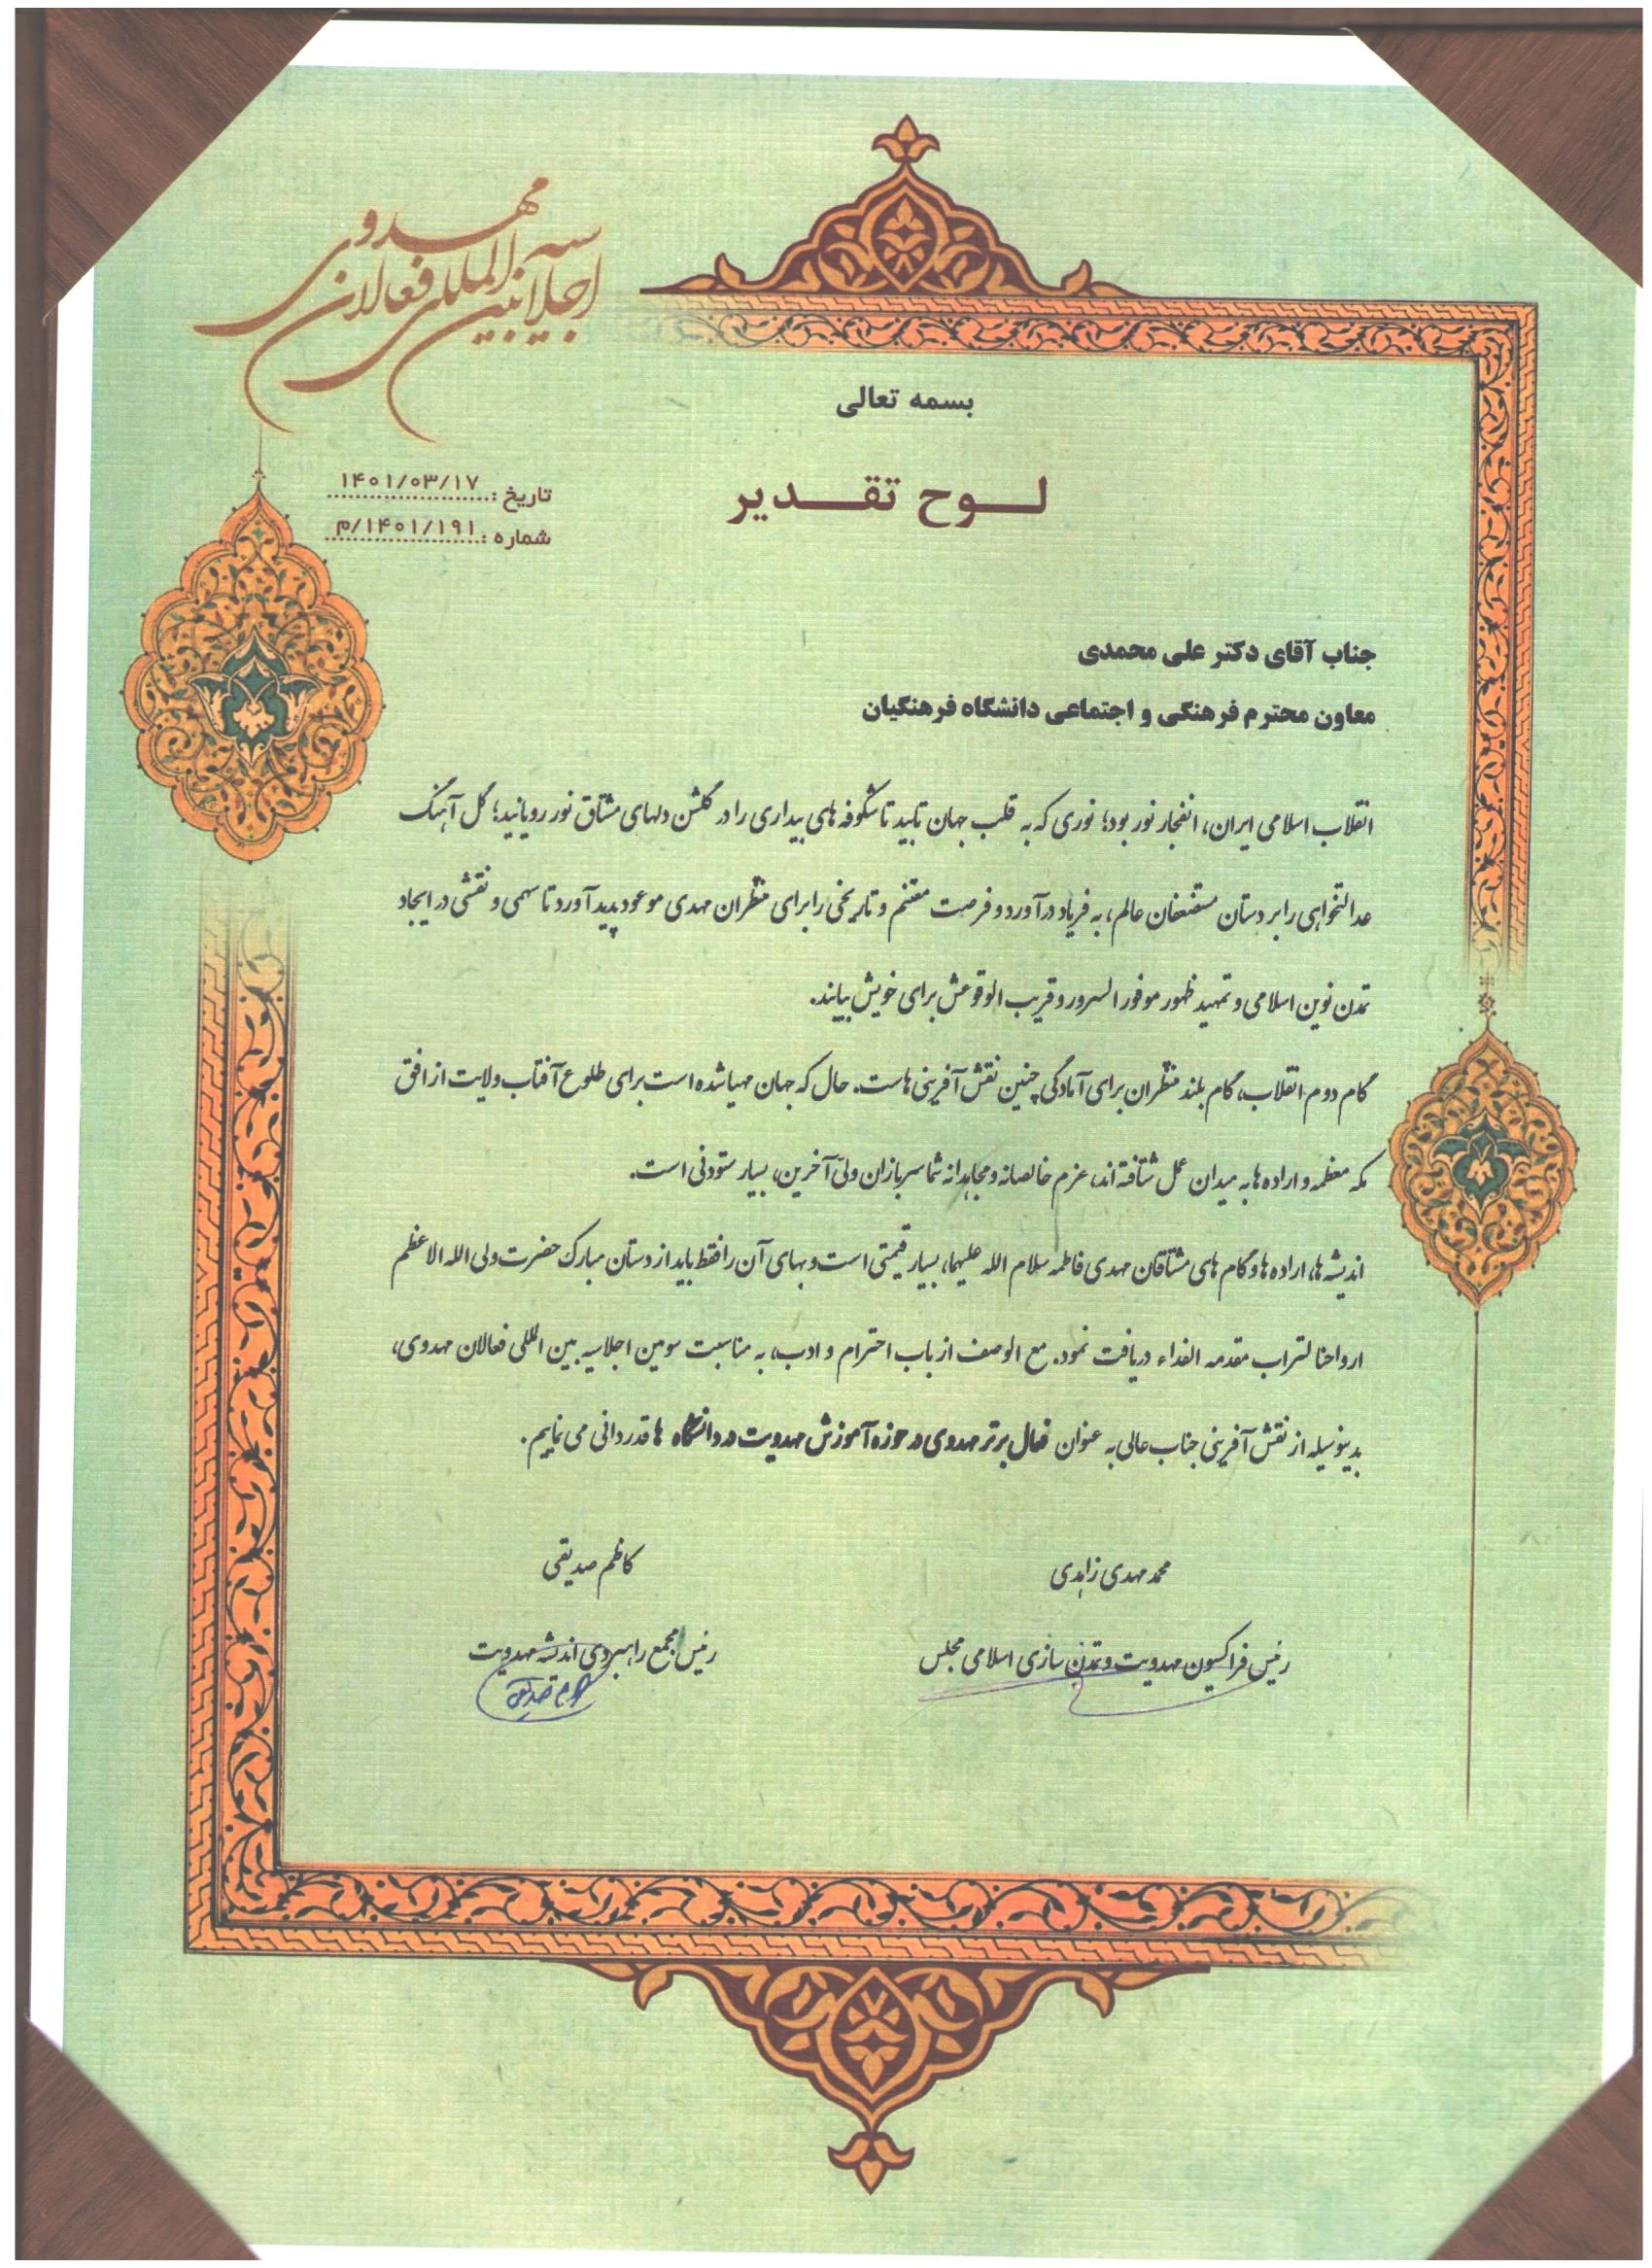 اجلاسیه بین المللی فعالان مهدوی
بسمه تعالی
لوح تقدیر
تاریخ : ۱۴۰۱/۰۳/۱۷
شماره : ۱۴۰۱/۱۹۱/م
جناب آقای دکتر علی محمدی
معاون محترم فرهنگی و اجتماعی دانشگاه فرهنگیان
انقلاب اسلامی ایران، انفجار نور بود؛ نوری که به قلب جهان تابید تا شکوفه های بیداری را در گلشن دلهای مشتاق نور رویانید؛ گل آهنگ
عدالتخواهی را بر دستان مستضعفان عالم، به فریاد درآورد و فرصت مغتنم و تاریخی را برای منتظران مهدی موعود پدید آورد تا سهمی و نقشی در ایجاد
تمدن نوین اسلامی و تمهید ظهور موفور السرور و قریب الوقوعش برای خویش بیابند.
گام دوم انقلاب، گام بلند منتظران برای آمادگی چنین نقش آفرینی هاست. حال که جهان مهیا شده است برای طلوع آفتاب ولایت از افق
مکه معظمه و اراده ها به میدان عمل شتافته اند، عزم خالصانه و مجاهدانه شما سربازان ولیّ آخرین، بسیار ستودنی است.
اندیشه ها، اراده ها و گام های مشتاقان مهدی فاطمه سلام الله علیهما، بسیار قیمتی است و بهای آن را فقط باید از دستان مبارک حضرت ولی الله الاعظم
ارواحنا لتراب مقدمه الفداء دریافت نمود. مع الوصف از باب احترام و ادب، به مناسبت سومین اجلاسیه بین المللی فعالان مهدوی،
بدینوسیله از نقش آفرینی جناب عالی به عنوان فعال برتر مهدوی در حوزه آموزش مهدویت در دانشگاه ها قدردانی می نماییم.
محمد مهدی زاهدی
رئیس فراکسیون مهدویت و تمدن سازی اسلامی مجلس
کاظم صدیقی
رئیس مجمع راهبردی اندیشه مهدویت